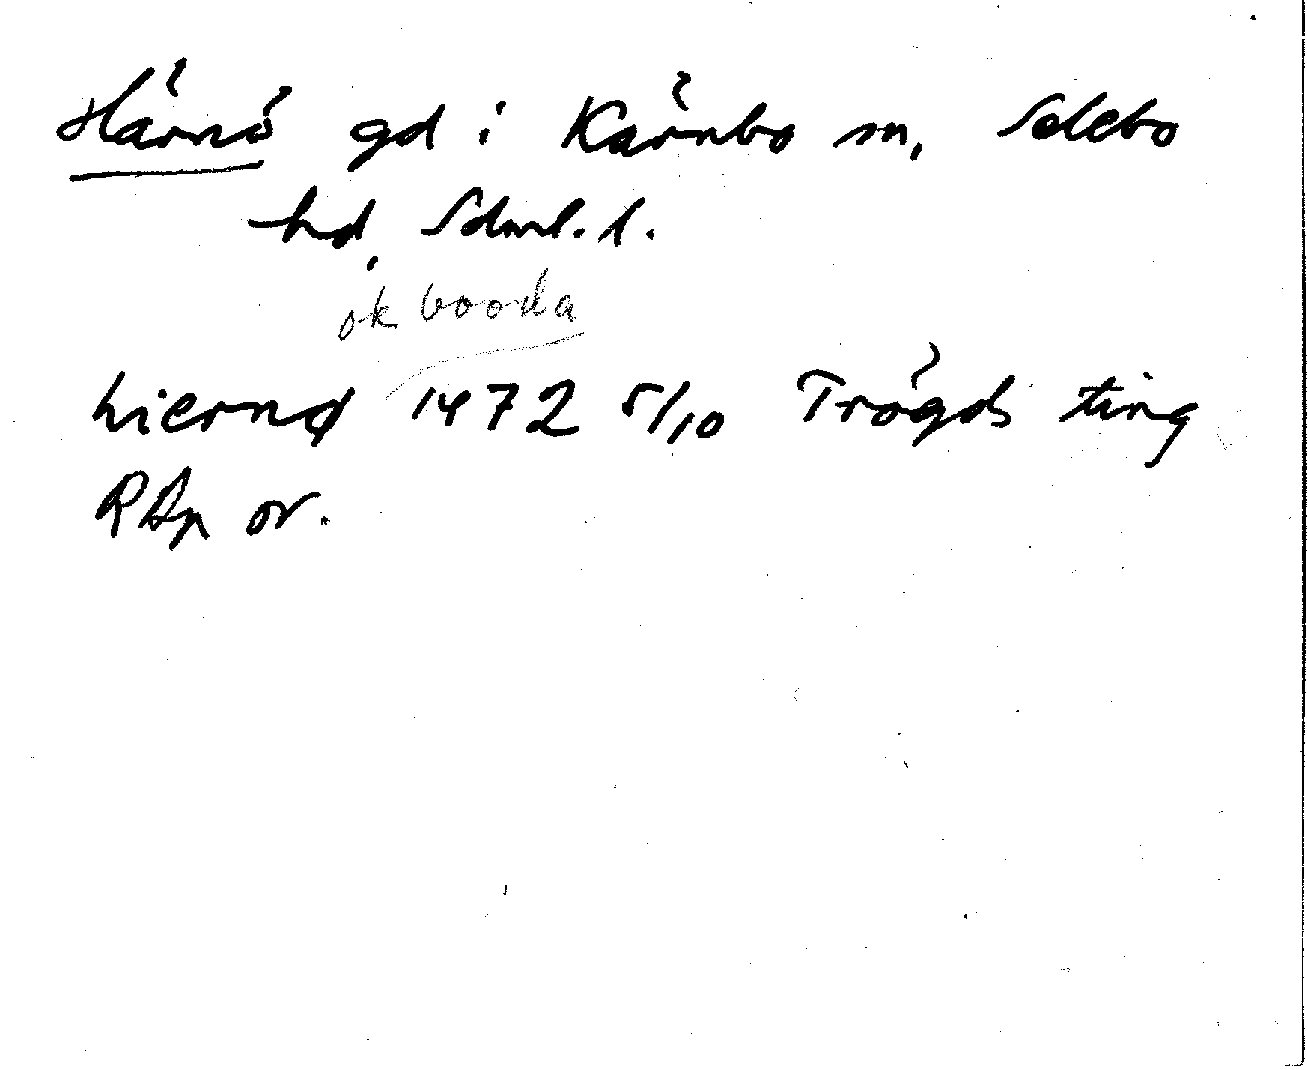 Härnö gd i Kärnbo sn, Selebo
hd, Sdml. l.
ok booda
hiernø 1472 5/10 Trögds ting
RAp or.